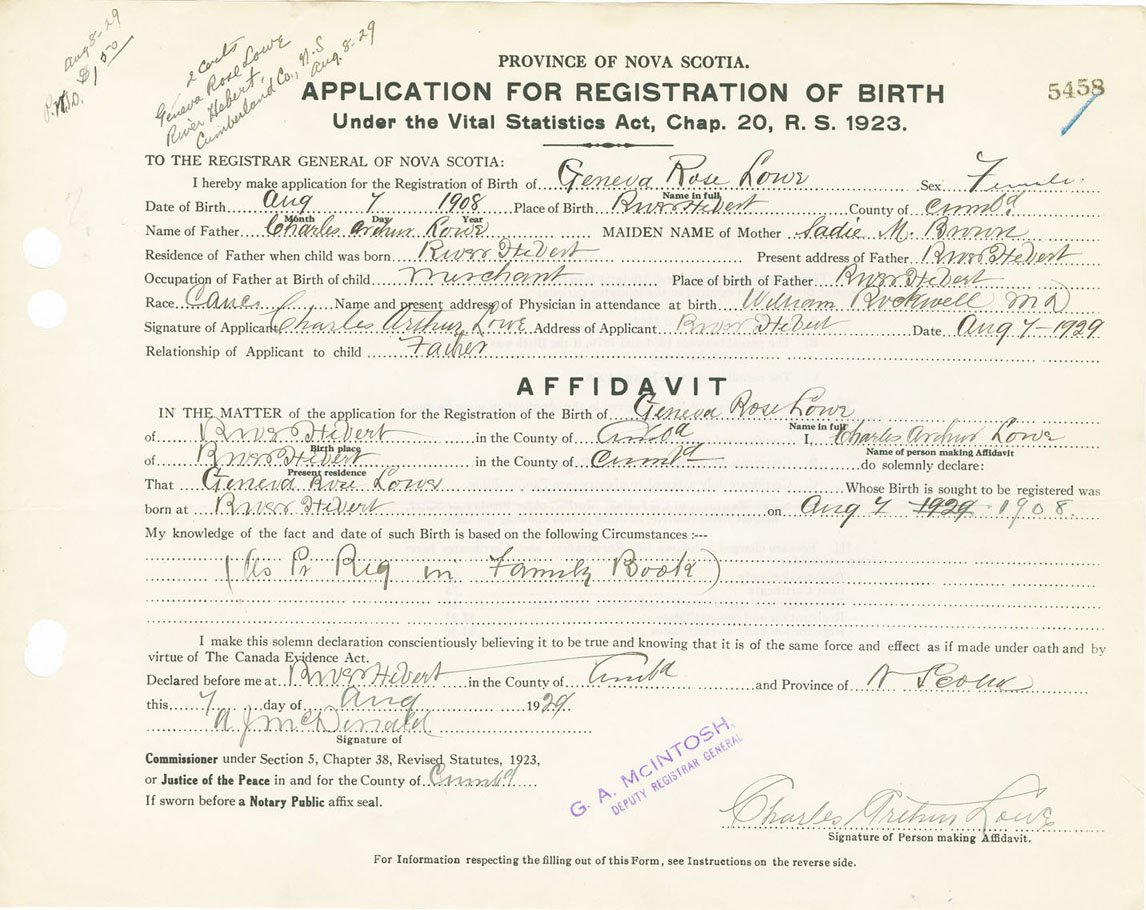 Aug 8-29
P.N.D. $1.50
2 certs
Geneva Rose Lowe
River Hebert,
Cumberland Co., N.S
Aug. 8-29
PROVINCE OF NOVA SCOTIA.
APPLICATION FOR REGISTRATION OF BIRTH
5458
Under the Vital Statistics Act, Chap. 20, R. S. 1923.
TO THE REGISTRAR GENERAL OF NOVA SCOTIA:
I hereby make application for the Registration of Birth of Geneva Rose Lowe Sex Female
Name in full
Date of Birth Aug 7 1908 Place of Birth River Hebert County of Cumbd
Month Day Year
Name of Father Charles Arthur Lowe MAIDEN NAME of Mother Sadie M. Brown
Residence of Father when child was born River Hebert Present address of Father River Hebert
Occupation of Father at Birth of child Merchant Place of birth of Father River Hebert
Race Cauc Name and present address of Physician in attendance at birth William Rockwell MD
Signature of Applicant Charles Arthur Lowe Address of Applicant River Hebert Date Aug 7-1929
Relationship of Applicant to child Father
AFFIDAVIT
IN THE MATTER of the application for the Registration of the Birth of Geneva Rose Lowe
Name in full
of River Hebert in the County of Cumbd I, Charles Arthur Lowe
Birth place Name of person making Affidavit
of River Hebert in the County of Cumbd do solemnly declare:
Present residence
That Geneva Rose Lowe Whose Birth is sought to be registered was
born at River Hebert on Aug 7 1929 1908
My knowledge of the fact and date of such Birth is based on the following Circumstances :---
(As Pr Reg in Family Book)
I make this solemn declaration conscientiously believing it to be true and knowing that it is of the same force and effect as if made under oath and by
virtue of The Canada Evidence Act.
Declared before me at River Hebert in the County of Cumbd and Province of N Scotia
this 7 day of Aug 1929
A J McDonald
Signature of
Commissioner under Section 5, Chapter 38, Revised Statutes, 1923,
or Justice of the Peace in and for the County of Cumbd
If sworn before a Notary Public affix seal.
G. A. MCINTOSH.
DEPUTY REGISTRAR GENERAL
Charles Arthur Lowe
Signature of Person making Affidavit.
For Information respecting the filling out of this Form, see Instructions on the reverse side.